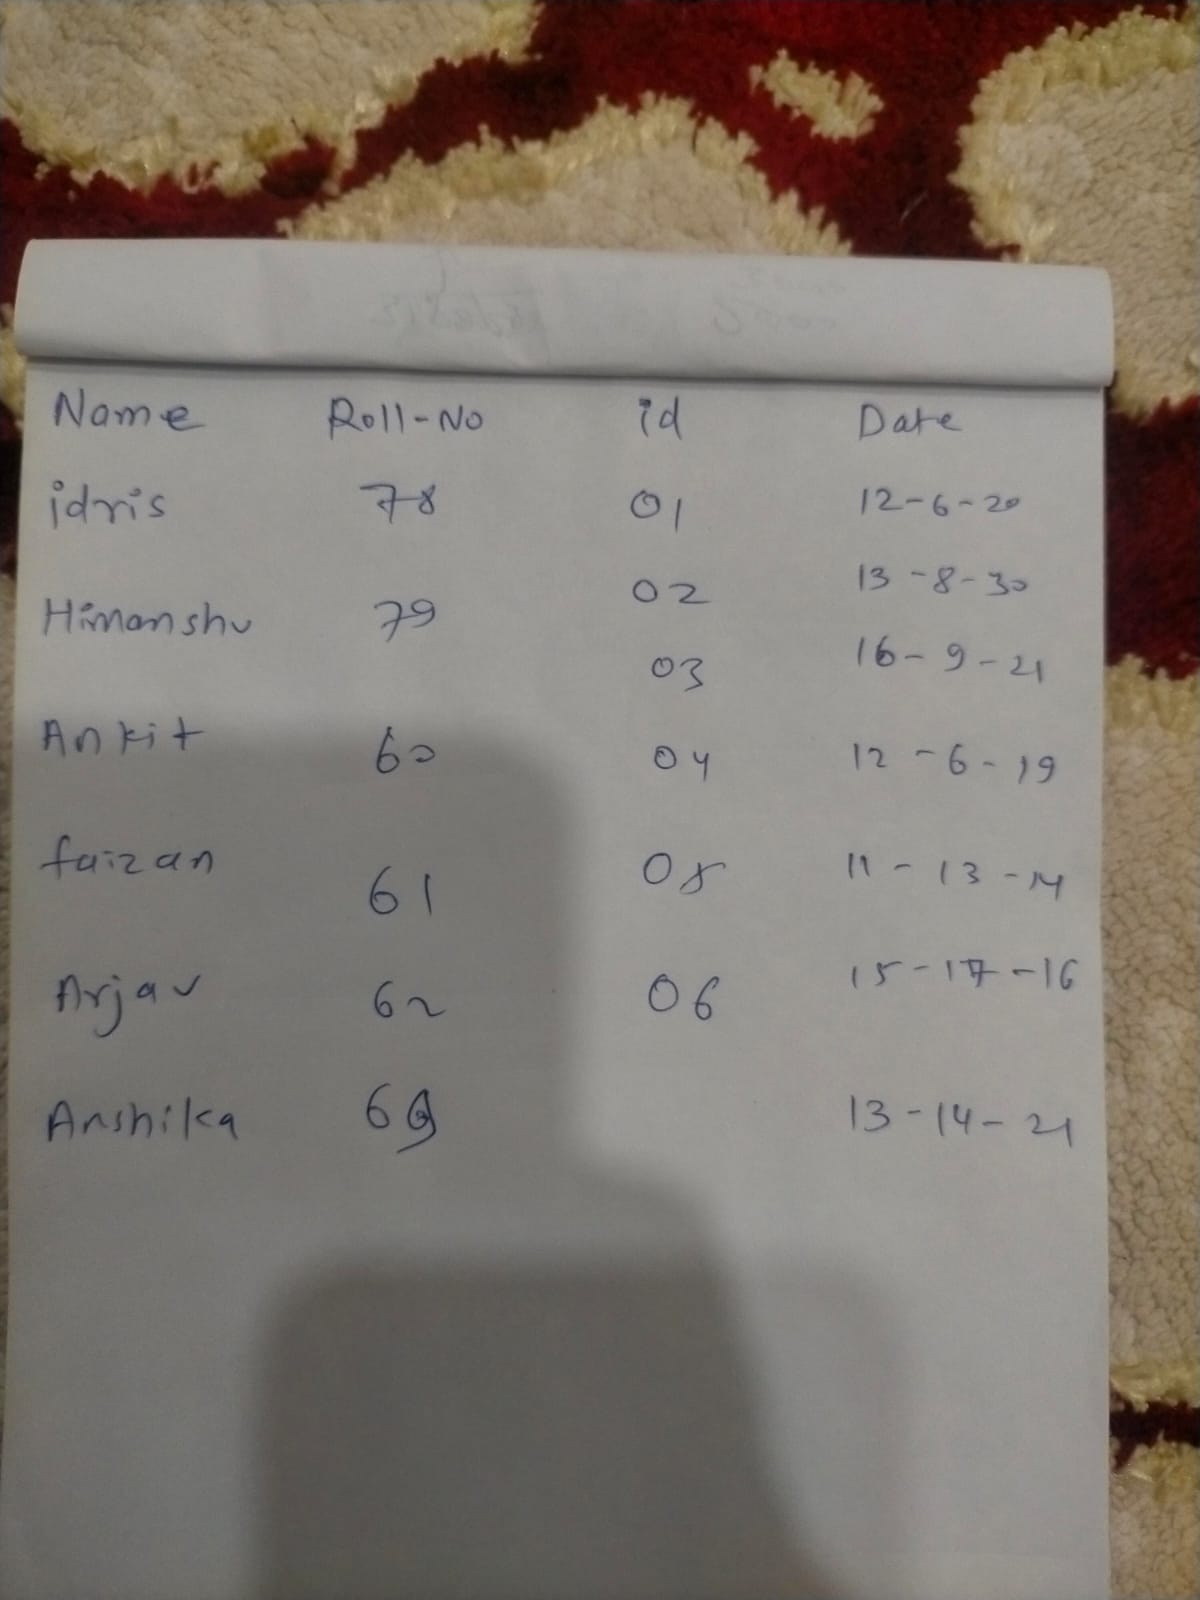 Name Roll-No id Date
idris 78 01 12-6-20
Himanshu 79 02 13-8-30
03 16-9-21
Ankit 60 04 12-6-19
faizan 61 05 11-13-14
Arjav 62 06 15-17-16
Anshika 13-14-21